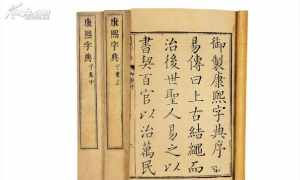 御製康熙字典序
易傳曰上古結繩而
治後世聖人易之以
書契百官以治萬民
康熙字典
康熙字典